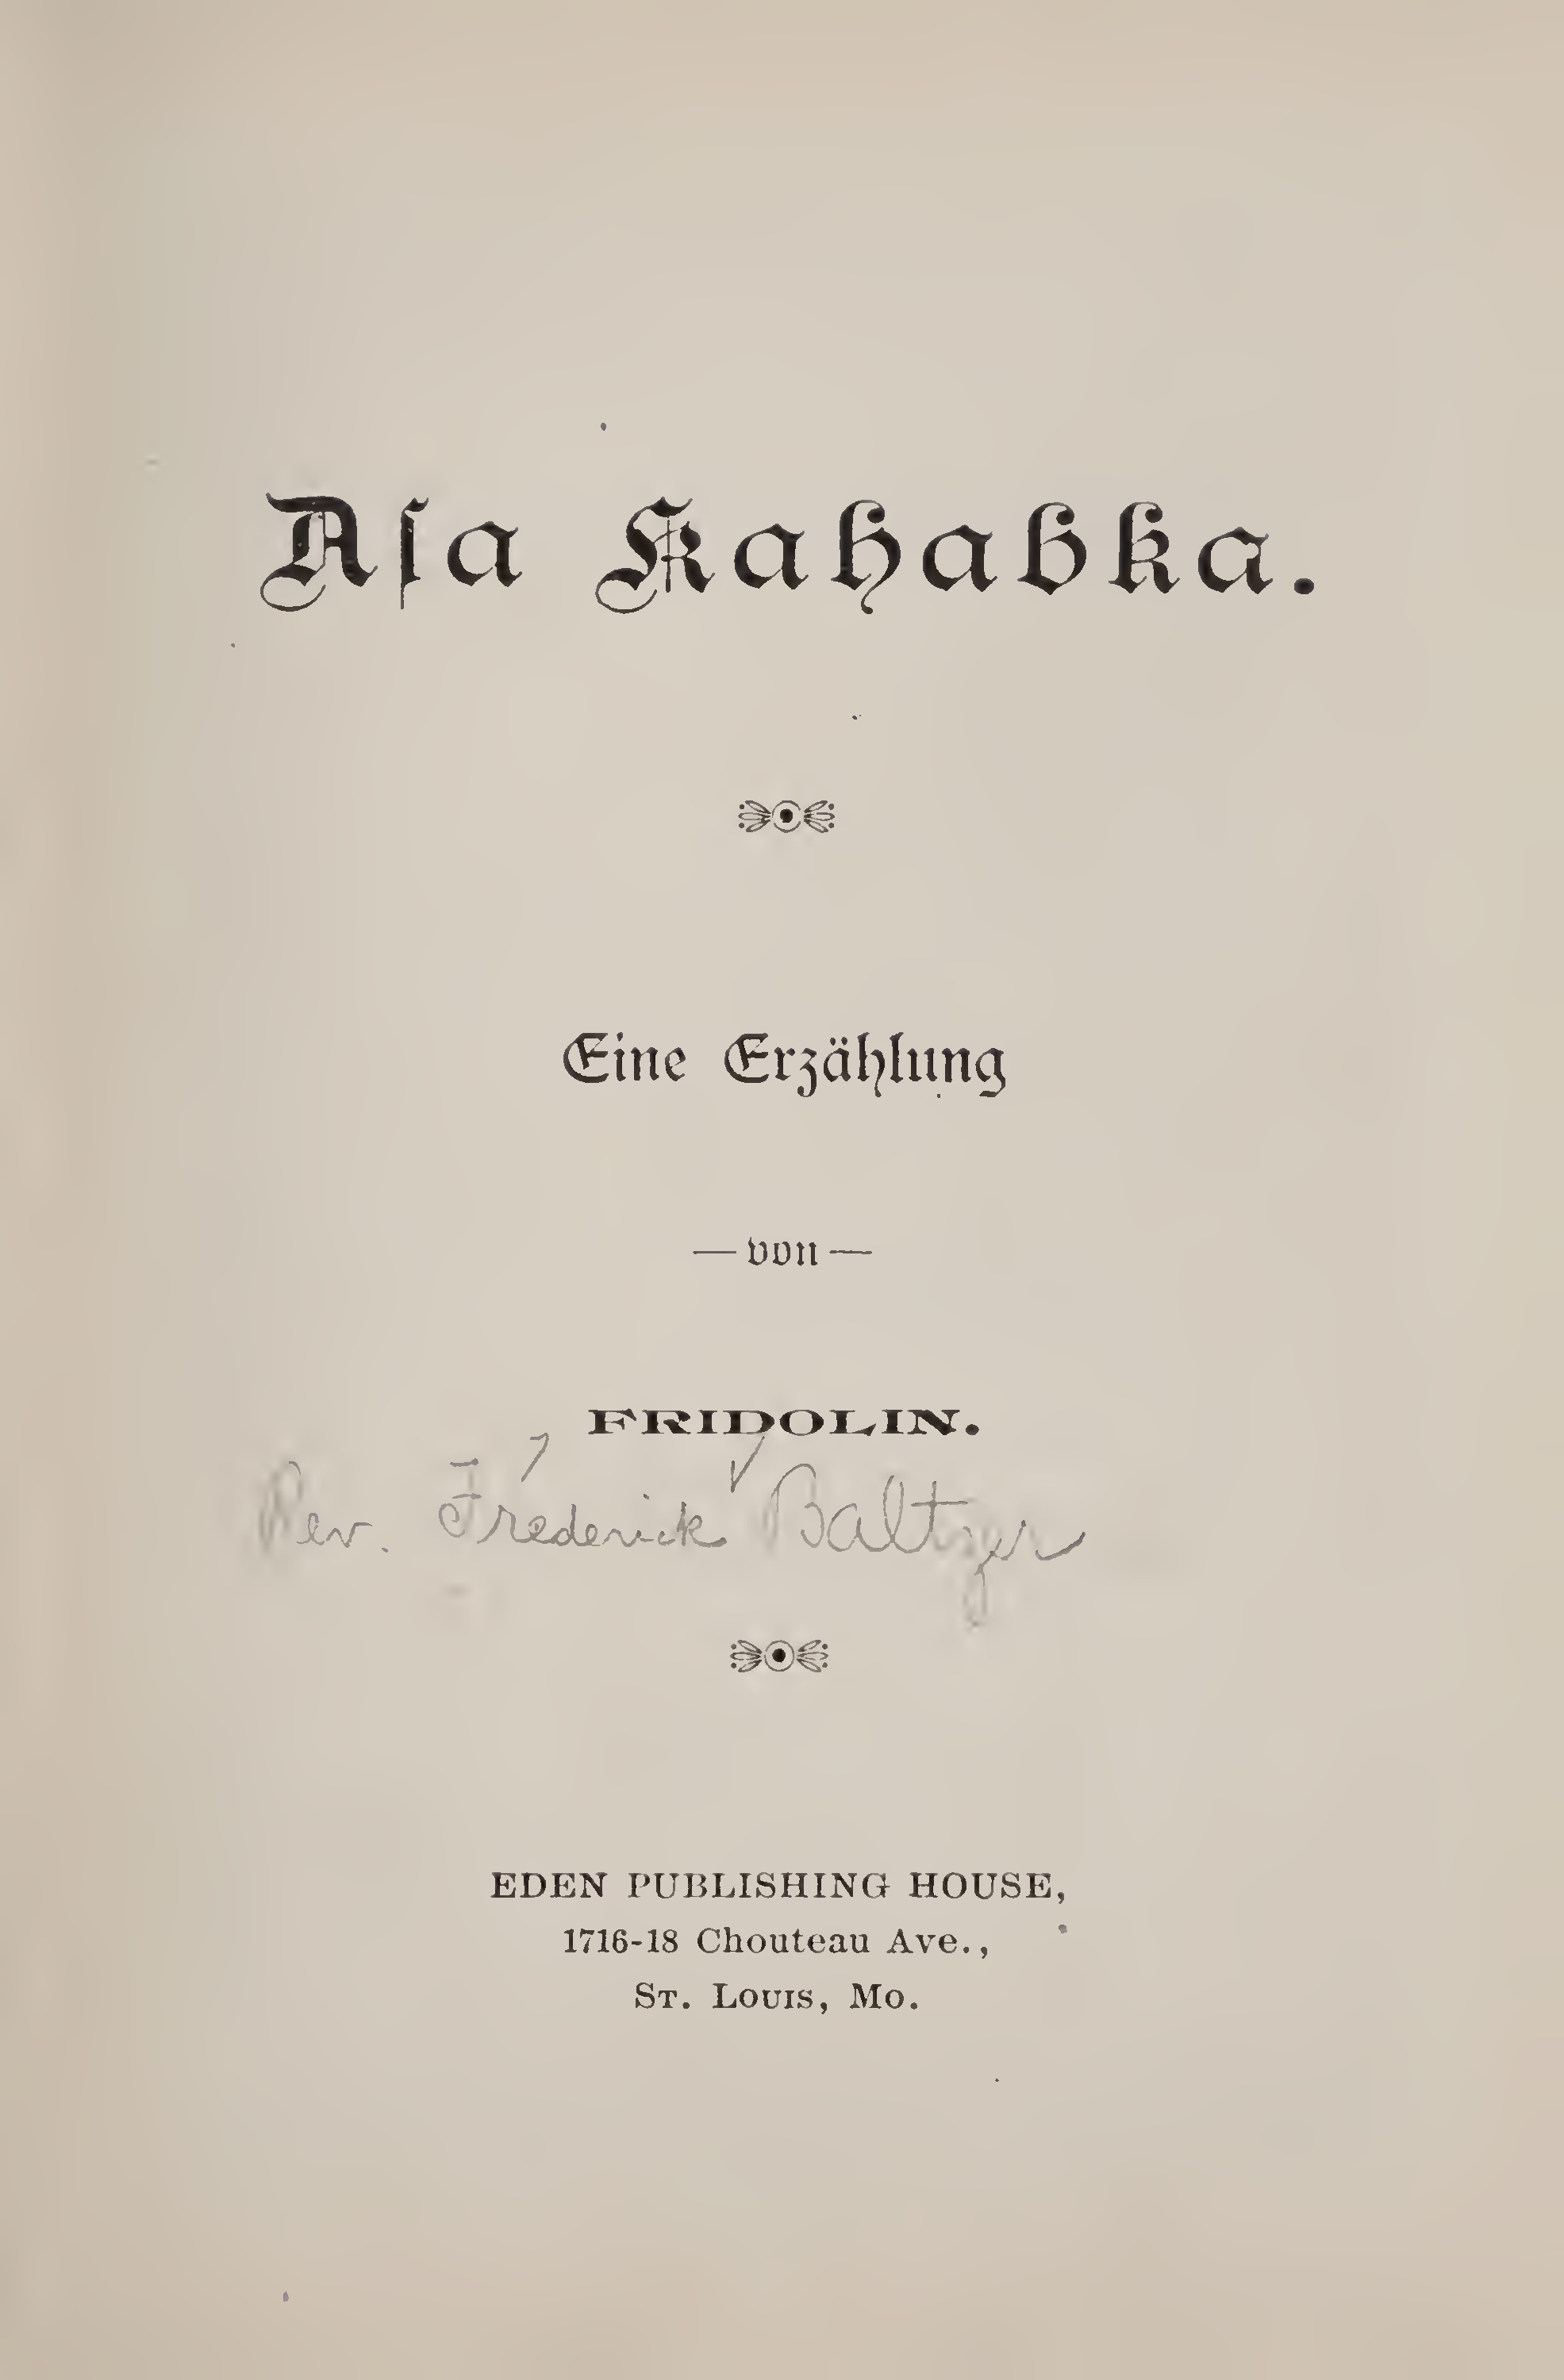 Aſa Kahabka.
Eine Erzählung
— von —
FRIDOLIN.
Rev. Frederick Baltzer
EDEN PUBLISHING HOUSE,
1716-18 Chouteau Ave.,
St. Louis, Mo.